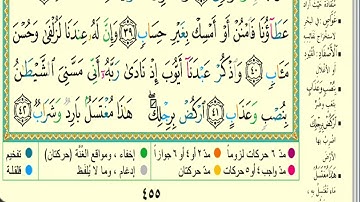 عَطَآؤُنَا فَٱمۡنُنۡ أَوۡ أَمۡسِكۡ بِغَيۡرِ حِسَابٖ ٣٩ وَإِنَّ لَهُۥ عِندَنَا لَزُلۡفَىٰ وَحُسۡنَ
مَـَٔابٖ ٤٠ وَٱذۡكُرۡ عَبۡدَنَآ أَيُّوبَ إِذۡ نَادَىٰ رَبَّهُۥٓ أَنِّي مَسَّنِيَ ٱلشَّيۡطَٰنُ
بِنُصۡبٖ وَعَذَابٍ ٤١ ٱرۡكُضۡ بِرِجۡلِكَۖ هَٰذَا مُغۡتَسَلُۢ بَارِدٞ وَشَرَابٞ ٤٢
مدّ ٦ حركات لزوماً مدّ ٢ أو ٤ أو ٦ جوازاً إخفاء، ومواقع الغُنَّة (حركتان) تفخيم
مدّ واجب ٤ أو ٥ حركات مدّ حركتان إدغام، وما لا يُلفَظ قلقلة
٤٥٥